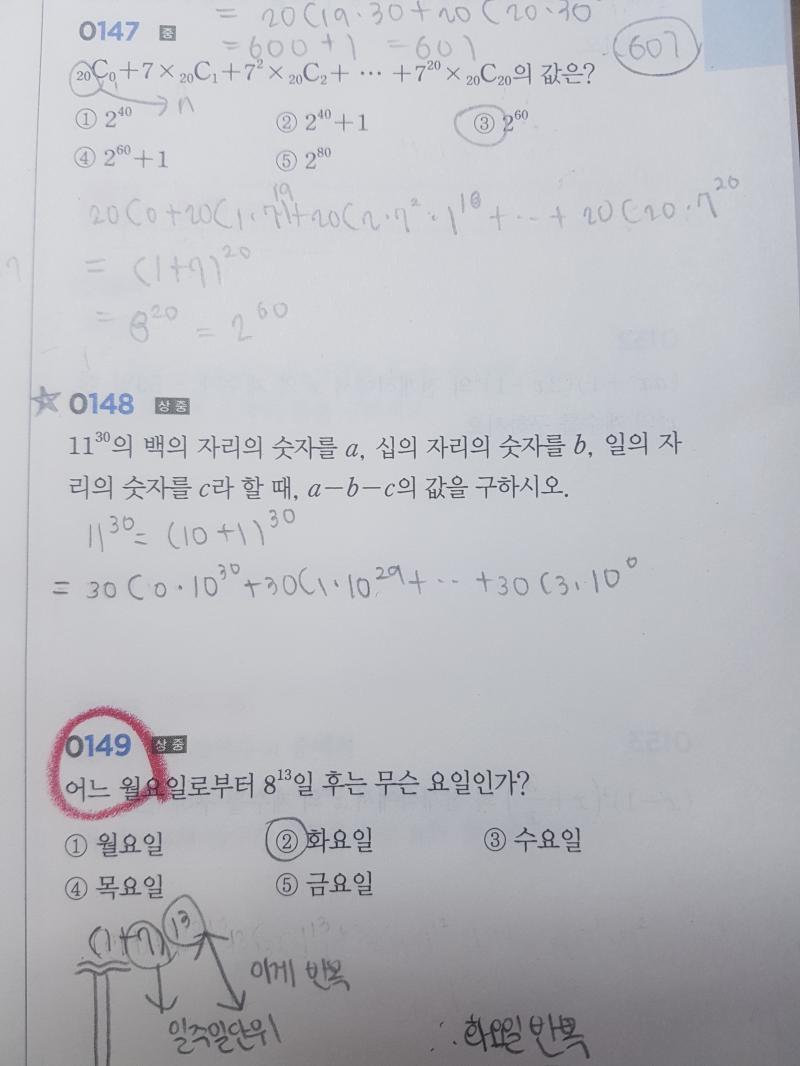 = 20C19·30+20C20·30
0147 중
= 600+1 = 601
601
₂₀C₀+7×₂₀C₁+7²×₂₀C₂+ ⋯ +7²⁰×₂₀C₂₀의 값은?
→ n
① 2⁴⁰ ② 2⁴⁰+1 ③ 2⁶⁰
④ 2⁶⁰+1 ⑤ 2⁸⁰
20C0+20C1·7·1¹⁹+20C2·7²·1¹⁸+ ⋯ + 20C20·7²⁰
= (1+7)²⁰
= 8²⁰ = 2⁶⁰
0148 상중
11³⁰의 백의 자리의 숫자를 a, 십의 자리의 숫자를 b, 일의 자
리의 숫자를 c라 할 때, a−b−c의 값을 구하시오.
11³⁰= (10+1)³⁰
= 30C0·10³⁰+30C1·10²⁹+ ⋯ +30C3·10⁰
0149 상중
어느 월요일로부터 8¹³일 후는 무슨 요일인가?
① 월요일 ② 화요일 ③ 수요일
④ 목요일 ⑤ 금요일
(1+7)¹³
이게 반복
일주일단위
∴ 화요일 반복